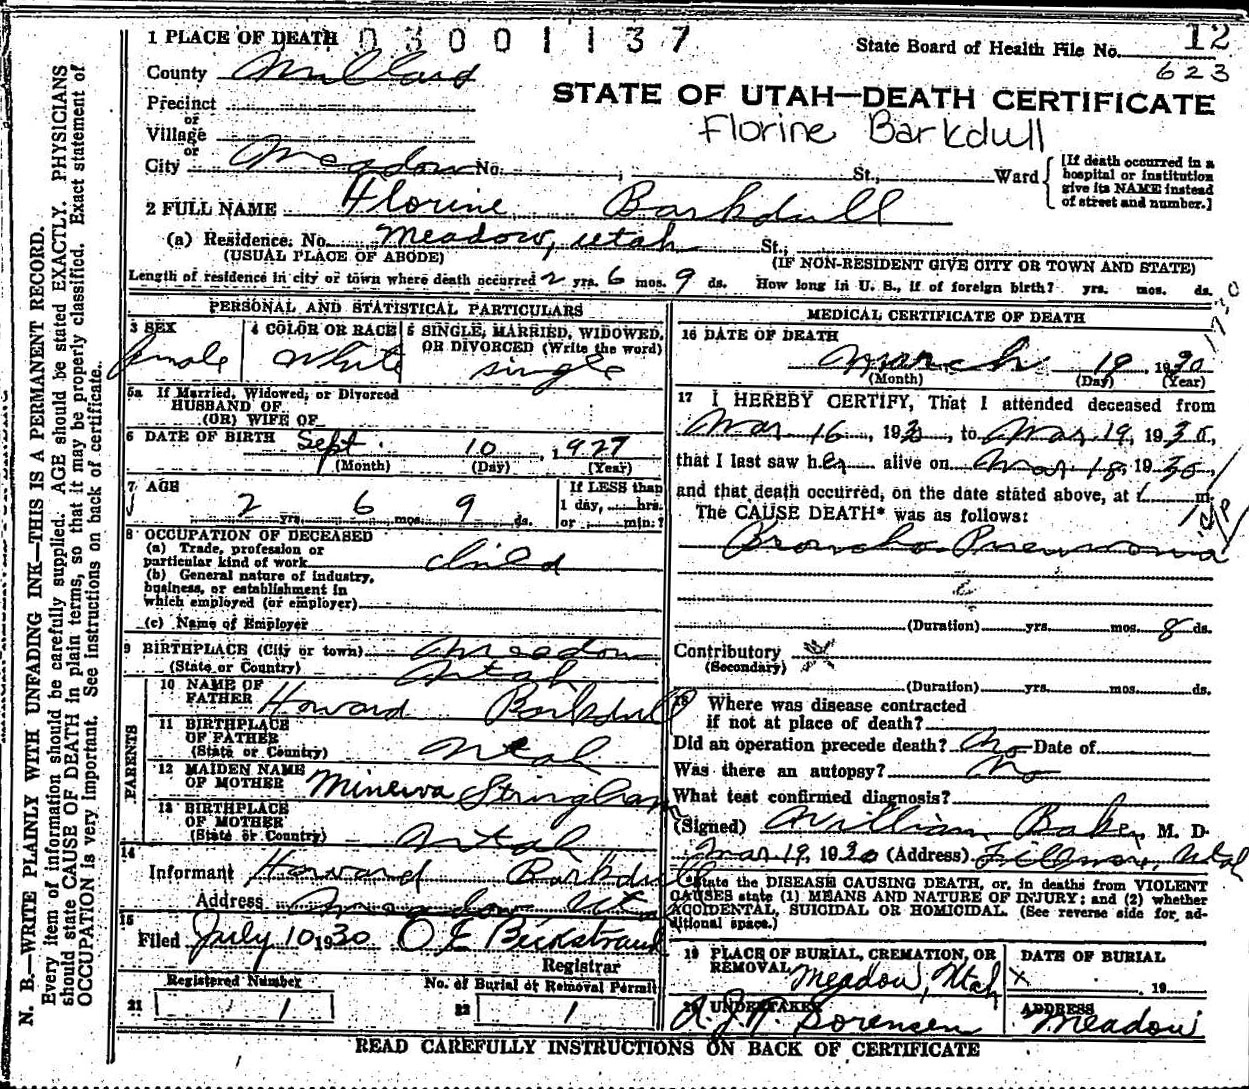 N. B.—WRITE PLAINLY WITH UNFADING INK—THIS IS A PERMANENT RECORD.
Every item of information should be carefully supplied. AGE should be stated EXACTLY. PHYSICIANS
should state CAUSE OF DEATH in plain terms, so that it may be properly classified. Exact statement of
OCCUPATION is very important. See instructions on back of certificate.
1 PLACE OF DEATH 03001137
State Board of Health File No. 12
623
County Millard
STATE OF UTAH—DEATH CERTIFICATE
Florine Barkdull
Precinct
or
Village
or
City Meadow No. , St., Ward
[If death occurred in a
hospital or institution
give its NAME instead
of street and number.]
2 FULL NAME Florine Barkdull
(a) Residence. No. Meadow, Utah St.,
(USUAL PLACE OF ABODE) (IF NON-RESIDENT GIVE CITY OR TOWN AND STATE)
Length of residence in city or town where death occurred 2 yrs. 6 mos. 9 ds. How long in U. S., if of foreign birth? yrs. mos. ds.
PERSONAL AND STATISTICAL PARTICULARS
3 SEX female
4 COLOR OR RACE White
5 SINGLE, MARRIED, WIDOWED,
OR DIVORCED (Write the word)
single
5a If Married, Widowed, or Divorced
HUSBAND OF
(OR) WIFE OF
6 DATE OF BIRTH Sept. 10, 1927
(Month) (Day) (Year)
7 AGE
2 yrs. 6 mos. 9 ds.
If LESS than
1 day, hrs.
or min.?
8 OCCUPATION OF DECEASED
(a) Trade, profession or
particular kind of work child
(b) General nature of industry,
business, or establishment in
which employed (or employer)
(c) Name of Employer
9 BIRTHPLACE (City or town) Meadow
(State or Country) Utah
PARENTS
10 NAME OF
FATHER Howard Barkdull
11 BIRTHPLACE
OF FATHER
(State or Country) Utah
12 MAIDEN NAME
OF MOTHER Minerva Stringham
13 BIRTHPLACE
OF MOTHER
(State or Country) Utah
14
Informant Howard Barkdull
Address Meadow Utah
15
Filed July 10 1930 O E Beckstrand
Registrar
Registered Number
21 1
No. of Burial or Removal Permit
22 1
MEDICAL CERTIFICATE OF DEATH
16 DATE OF DEATH
March 19, 1930
(Month) (Day) (Year)
17 I HEREBY CERTIFY, That I attended deceased from
Mar 16, 1930, to Mar 19, 1930,
that I last saw her alive on Mar 18, 1930,
and that death occurred, on the date stated above, at m.
The CAUSE DEATH* was as follows:
Broncho Pneumonia
(Duration) yrs. mos. 8 ds.
Contributory
(Secondary)
(Duration) yrs. mos. ds.
18 Where was disease contracted
if not at place of death?
Did an operation precede death? No Date of
Was there an autopsy? No
What test confirmed diagnosis?
(Signed) William Baker, M. D.
Mar 19, 1930 (Address) Fillmore, Utah
*State the DISEASE CAUSING DEATH, or, in deaths from VIOLENT
CAUSES state (1) MEANS AND NATURE OF INJURY; and (2) whether
ACCIDENTAL, SUICIDAL OR HOMICIDAL. (See reverse side for ad-
ditional space.)
19 PLACE OF BURIAL, CREMATION, OR
REMOVAL Meadow, Utah
DATE OF BURIAL
X 19
20 UNDERTAKER
Sorensen
ADDRESS
Meadow
READ CAREFULLY INSTRUCTIONS ON BACK OF CERTIFICATE